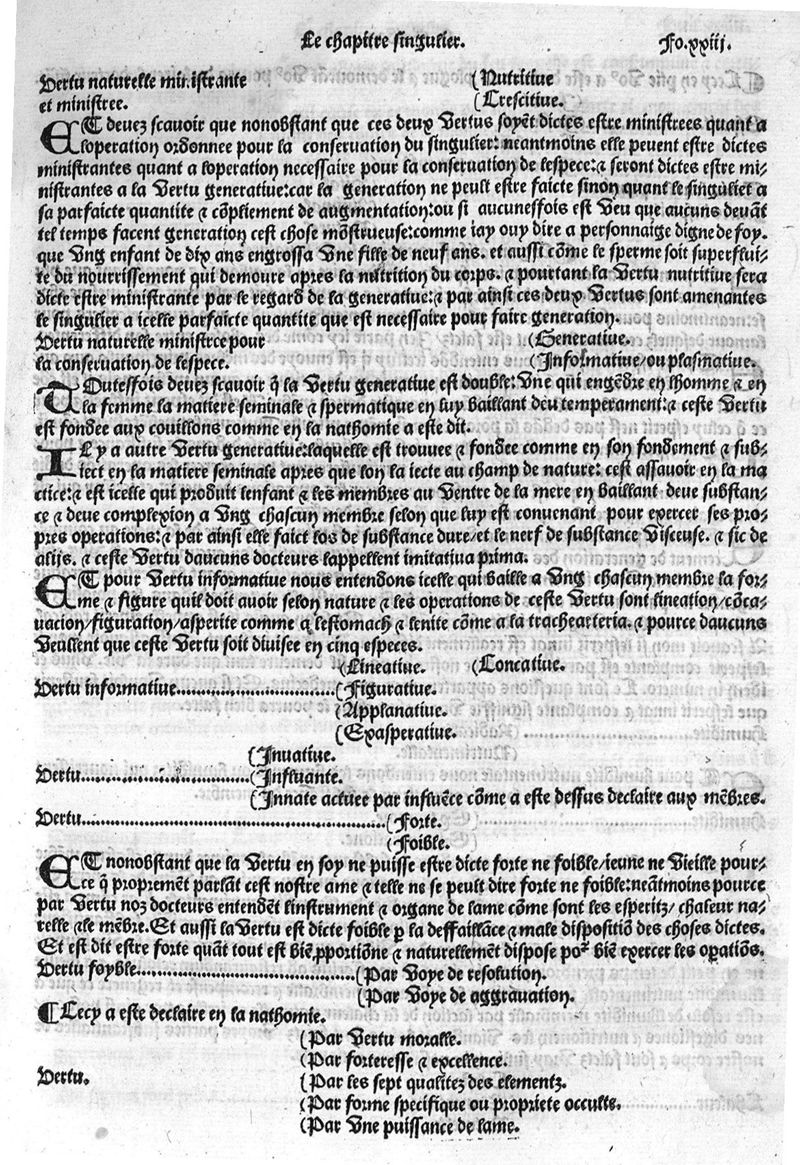 Le chapitre singulier. Fo.xxiij.
Vertu naturelle ministrante (Nutritiue
et ministree. (Crescitiue.
ET deuez scauoir que nonobstant que ces deux Vertus soyẽt dictes estre ministrees quant a
loperation ordonnee pour la conseruation du singulier: neantmoins elle peuent estre dictes
ministrantes quant a loperation necessaire pour la conseruation de lespece: ⁊ seront dictes estre mi-
nistrantes a la Vertu generatiue: car la generation ne peult estre faicte sinon quant le singulier a
sa parfaicte quantite ⁊ cõpliement de augmentation: ou si aucunesfois est Veu que aucuns deuãt
tel temps facent generation cest chose mõstrueuse: comme iay ouy dire a personnaige digne de foy.
que Vng enfant de dix ans engrossa Vne fille de neuf ans. et aussi cõme le sperme soit superflui-
te du nourrissement qui demoure apres la nutrition du corps. ⁊ pourtant la Vertu nutritiue sera
dicte estre ministrante par le regard de la generatiue: ⁊ par ainsi ces deux Vertus sont amenantes
le singulier a icelle parfaicte quantite que est necessaire pour faire generation.
Vertu naturelle ministree pour (Generatiue.
la conseruation de lespece. (Informatiue/ou plasmatiue.
TOutesfois deuez scauoir q̃ la Vertu generatiue est double: Vne qui engẽdre en lhomme ⁊ en
la femme la matiere seminale ⁊ spermatique en luy baillant deu temperament: ⁊ ceste Vertu
est fondee aux couillons comme en la nathomie a este dit.
IL y a autre Vertu generatiue: laquelle est trouuee ⁊ fondee comme en son fondement ⁊ sub-
iect en la matiere seminale apres que lon la iecte au champ de nature: cest assauoir en la ma
trice: ⁊ est icelle qui produit lenfant ⁊ les membres au Ventre de la mere en baillant deue substan-
ce ⁊ deue complexion a Vng chascun membre selon que luy est conuenant pour exercer ses pro-
pres operations: ⁊ par ainsi elle faict los de substance dure/et le nerf de substance Visceuse. ⁊ sic de
alijs. ⁊ ceste Vertu daucuns docteurs lappellent imitatiua prima.
ET pour Vertu informatiue nous entendons icelle qui baille a Vng chascun membre la for-
me ⁊ figure quil doit auoir selon nature ⁊ les operations de ceste Vertu sont lineation/cõca-
uacion/figuration/asperite comme a lestomach ⁊ lenite cõme a la trachearteria. ⁊ pource daucuns
Veullent que ceste Vertu soit diuisee en cinq especes.
(Lineatiue. (Concatiue.
Vertu informatiue..............................(Figuratiue.
(Applanatiue.
(Exasperatiue.
(Innatiue.
Vertu..............................(Influante.
(Innate actuee par influẽce cõme a este dessus declaire aux mẽbres.
Vertu..............................(Forte.
(Foible.
ET nonobstant que la Vertu en soy ne puisse estre dicte forte ne foible/ieune ne Vieille pour-
ce q̃ propremẽt parlãt cest nostre ame ⁊ telle ne se peult dire forte ne foible: neãtmoins pource
par Vertu noz docteurs entendẽt linstrument ⁊ organe de lame cõme sont les esperitz/ chaleur na-
relle ⁊ le mẽbre. Et aussi la Vertu est dicte foible ꝑ la deffaillãce ⁊ male dispositiõ des choses dictes.
Et est dit estre forte quãt tout est biẽ ꝓportiõne ⁊ naturellemẽt dispose poʳ biẽ exercer les oꝑatiõs.
Vertu foyble..............................(Par Voye de resolution.
(Par Voye de aggrauation.
¶ Cecy a este declaire en la nathomie.
(Par Vertu moralle.
(Par forteresse ⁊ excellence.
Vertu. (Par les sept qualitez des elementz.
(Par forme specifique ou propriete occulte.
(Par Vne puissance de lame.